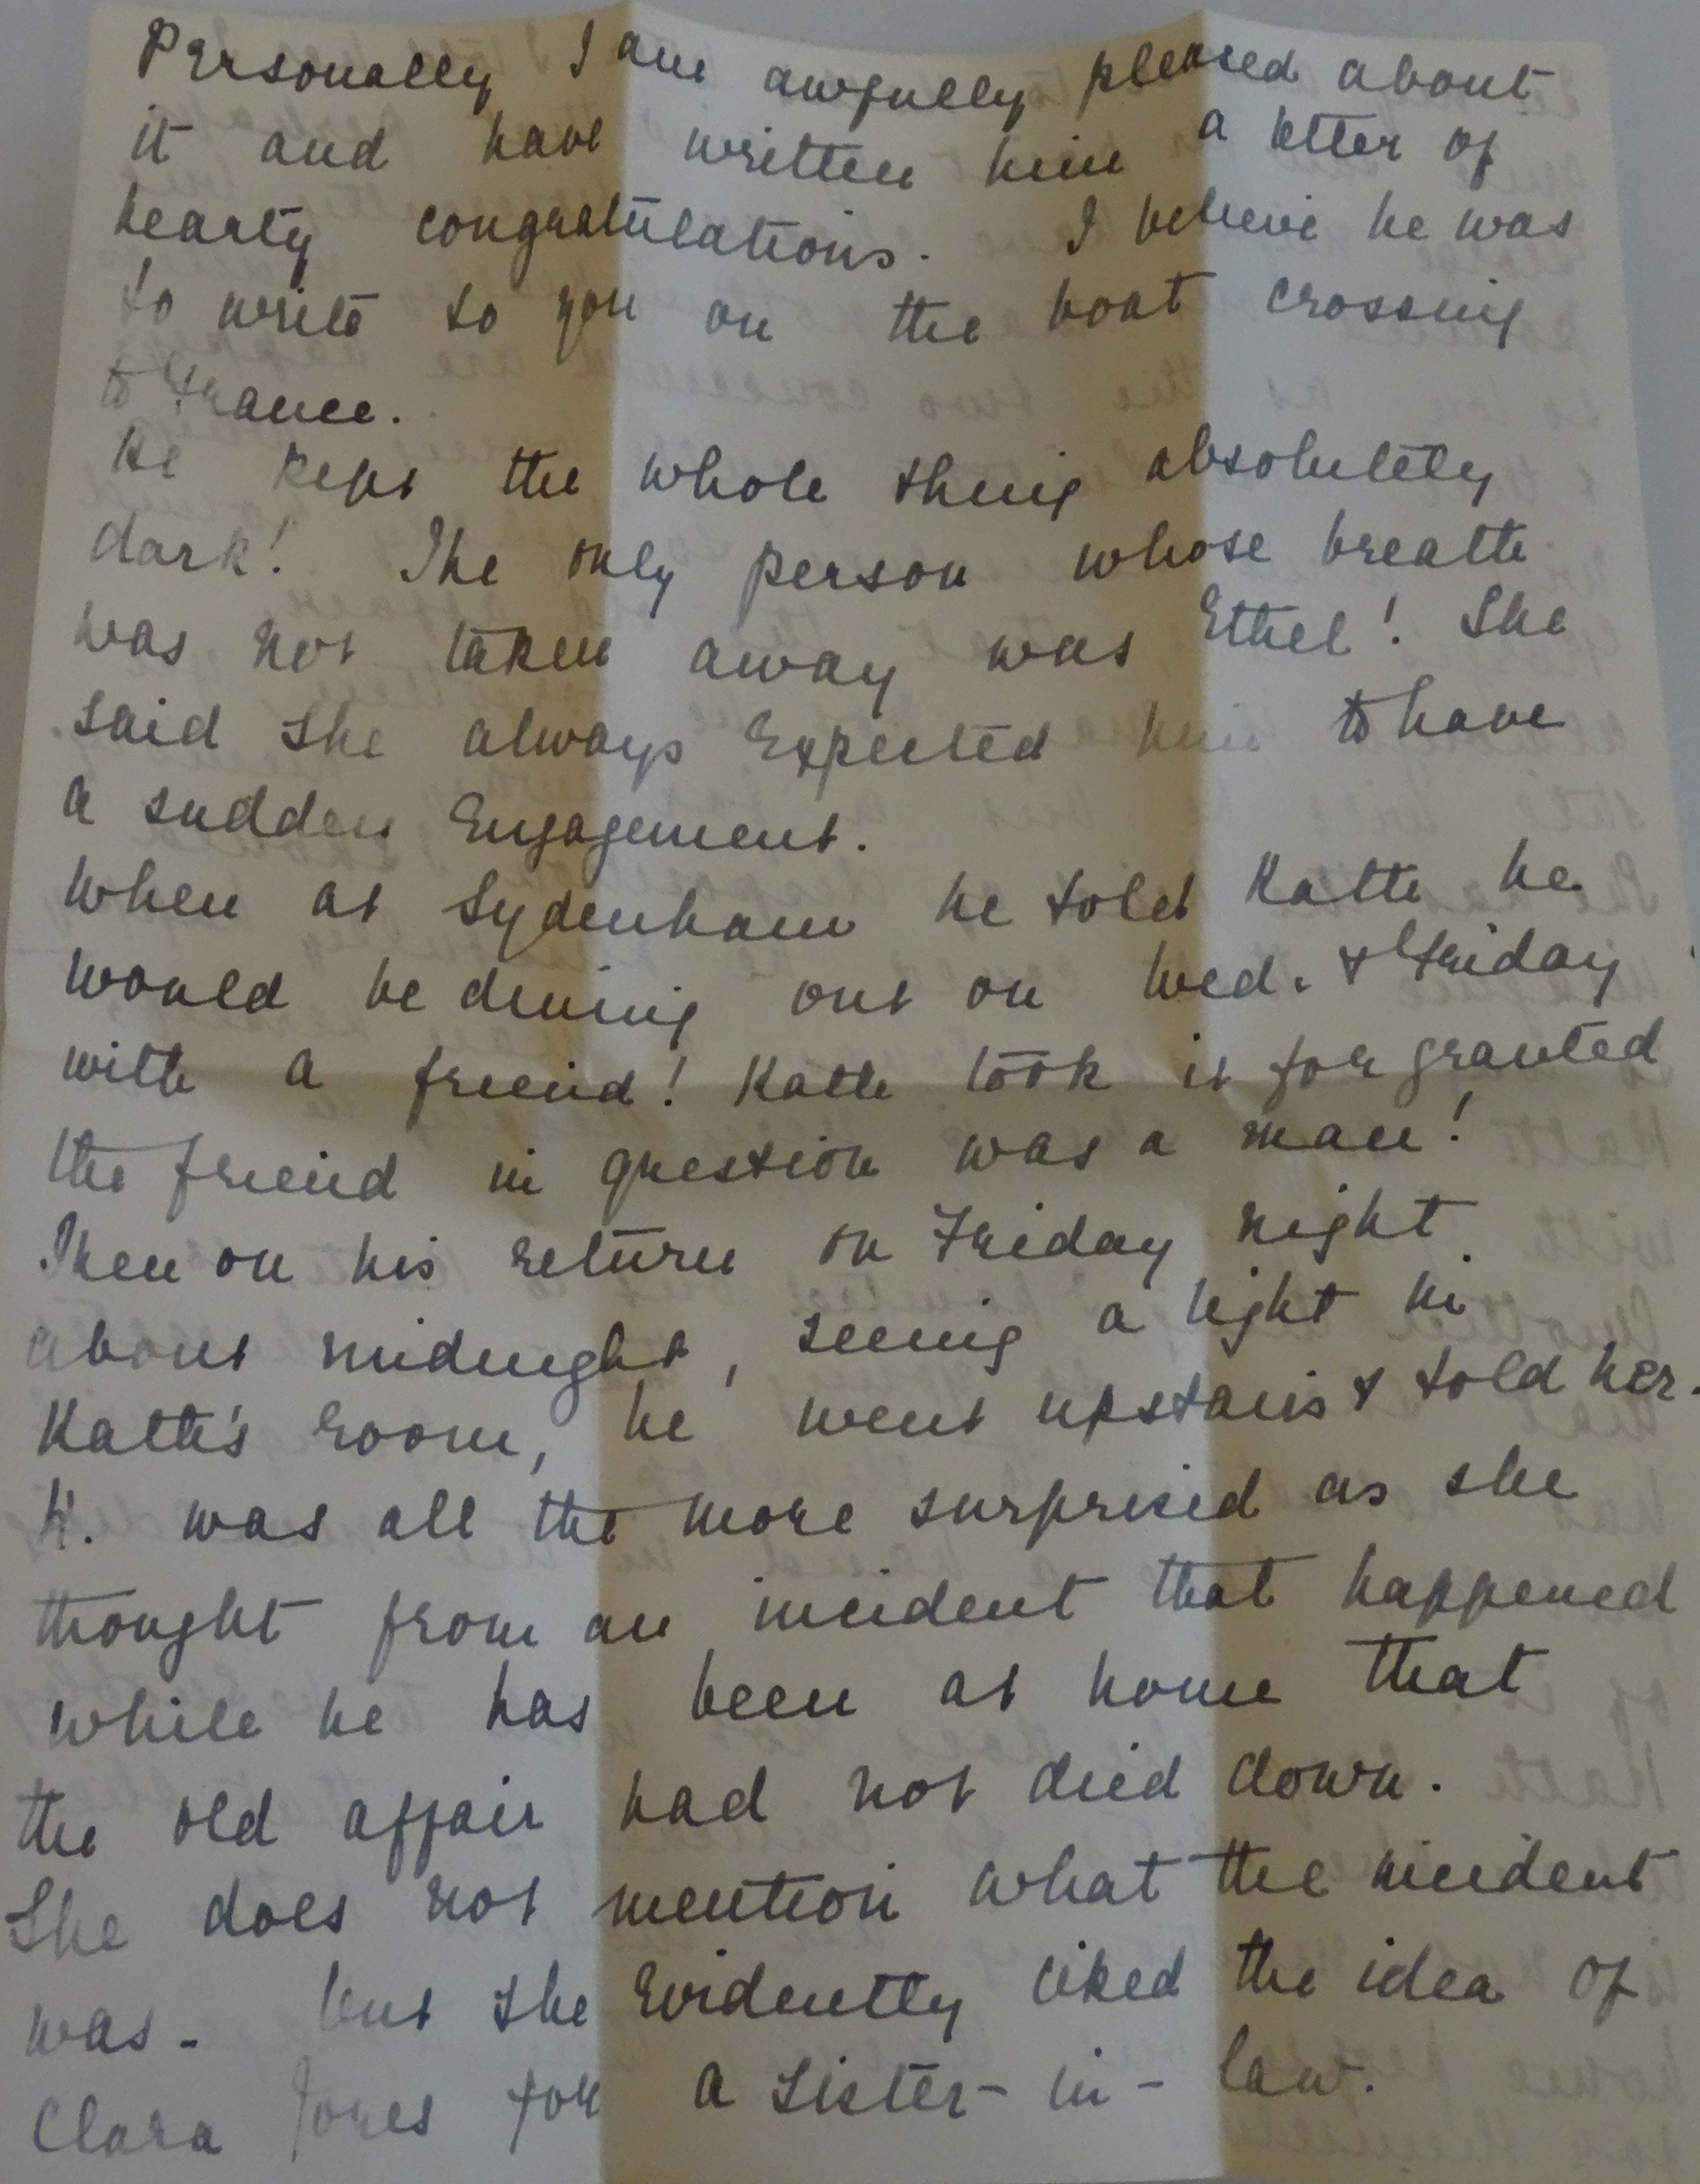 Personally I am awfully pleased about
it and have written him a letter of
hearty congratulations. I believe he was
to write to you on the boat crossing
to France.
He kept the whole thing absolutely
dark! The only person whose breath
was not taken away was Ethel! She
said she always expected him to have
a sudden Engagement.
When at Sydenham he told Kath he
would be dining out on Wed. & Friday
with a friend! Kath took it for granted
the friend in question was a man!
Then on his return on Friday night
about midnight, seeing a light in
Kath's room, he went upstairs & told her.
K. was all the more surprised as she
thought from an incident that happened
while he has been at home that
the old affair had not died down.
She does not mention what the incident
was - but she evidently liked the idea of
Clara Jones for a sister-in-law.